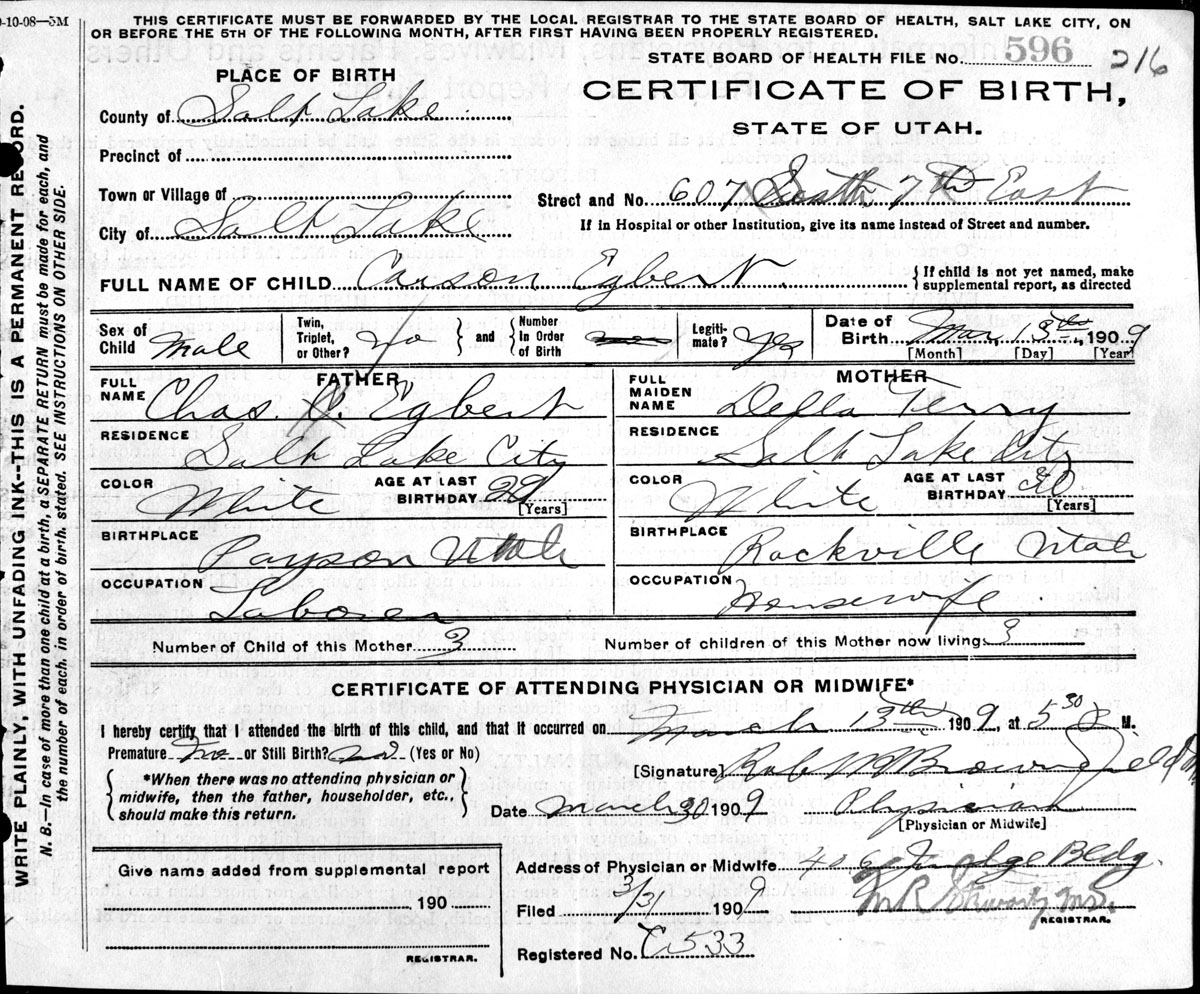 9-10-08—5M
THIS CERTIFICATE MUST BE FORWARDED BY THE LOCAL REGISTRAR TO THE STATE BOARD OF HEALTH, SALT LAKE CITY, ON
OR BEFORE THE 5TH OF THE FOLLOWING MONTH, AFTER FIRST HAVING BEEN PROPERLY REGISTERED.
STATE BOARD OF HEALTH FILE No. 596 216
PLACE OF BIRTH
CERTIFICATE OF BIRTH,
STATE OF UTAH.
County of Salt Lake
Precinct of
Town or Village of
City of Salt Lake
Street and No. 607 South 7th East
If in Hospital or other Institution, give its name instead of Street and number.
FULL NAME OF CHILD Carson Egbert
{If child is not yet named, make
supplemental report, as directed
Sex of Child Male
Twin, Triplet, or Other? No } and { Number In Order of Birth
Legitimate? Yes
Date of Birth Mar 13th, 1909
[Month] [Day] [Year]
FATHER
FULL NAME Chas. O. Egbert
RESIDENCE Salt Lake City
COLOR White AGE AT LAST BIRTHDAY 29 [Years]
BIRTHPLACE Payson Utah
OCCUPATION Laborer
MOTHER
FULL MAIDEN NAME Della Terry
RESIDENCE Salt Lake City
COLOR White AGE AT LAST BIRTHDAY 30 [Years]
BIRTHPLACE Rockville Utah
OCCUPATION Housewife
Number of Child of this Mother 3 Number of children of this Mother now living 3
CERTIFICATE OF ATTENDING PHYSICIAN OR MIDWIFE*
I hereby certify that I attended the birth of this child, and that it occurred on March 13th 1909, at 5 30 P M.
Premature No or Still Birth? No (Yes or No)
{ *When there was no attending physician or
midwife, then the father, householder, etc.,
should make this return. }
[Signature] Rob W Browningfield
Date March 30 1909 Physician
[Physician or Midwife]
Address of Physician or Midwife 406 Judge Bldg.
Filed 3/31 1909 M R Stewart
REGISTRAR.
Registered No. C533
Give name added from supplemental report
190
REGISTRAR.
WRITE PLAINLY, WITH UNFADING INK--THIS IS A PERMANENT RECORD.
N. B.—In case of more than one child at a birth, a SEPARATE RETURN must be made for each, and
the number of each, in order of birth, stated. SEE INSTRUCTIONS ON OTHER SIDE.